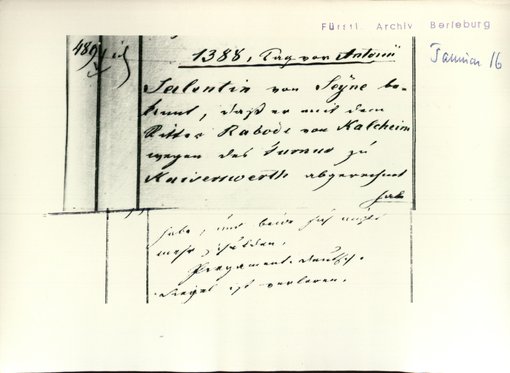 Fürstl. Archiv Berleburg
Januar 16
489
1388, Tag vor Antonii
Salentin von Seyne be-
kennt, daß er mit dem
Ritter Rabode von Kalcheim
wegen des Turnus zu
Kaiserswerth abgerechnet
habe
habe, und beide sich nicht
mehr schulden.
Pergament. Deutsch.
Siegel ist verloren.